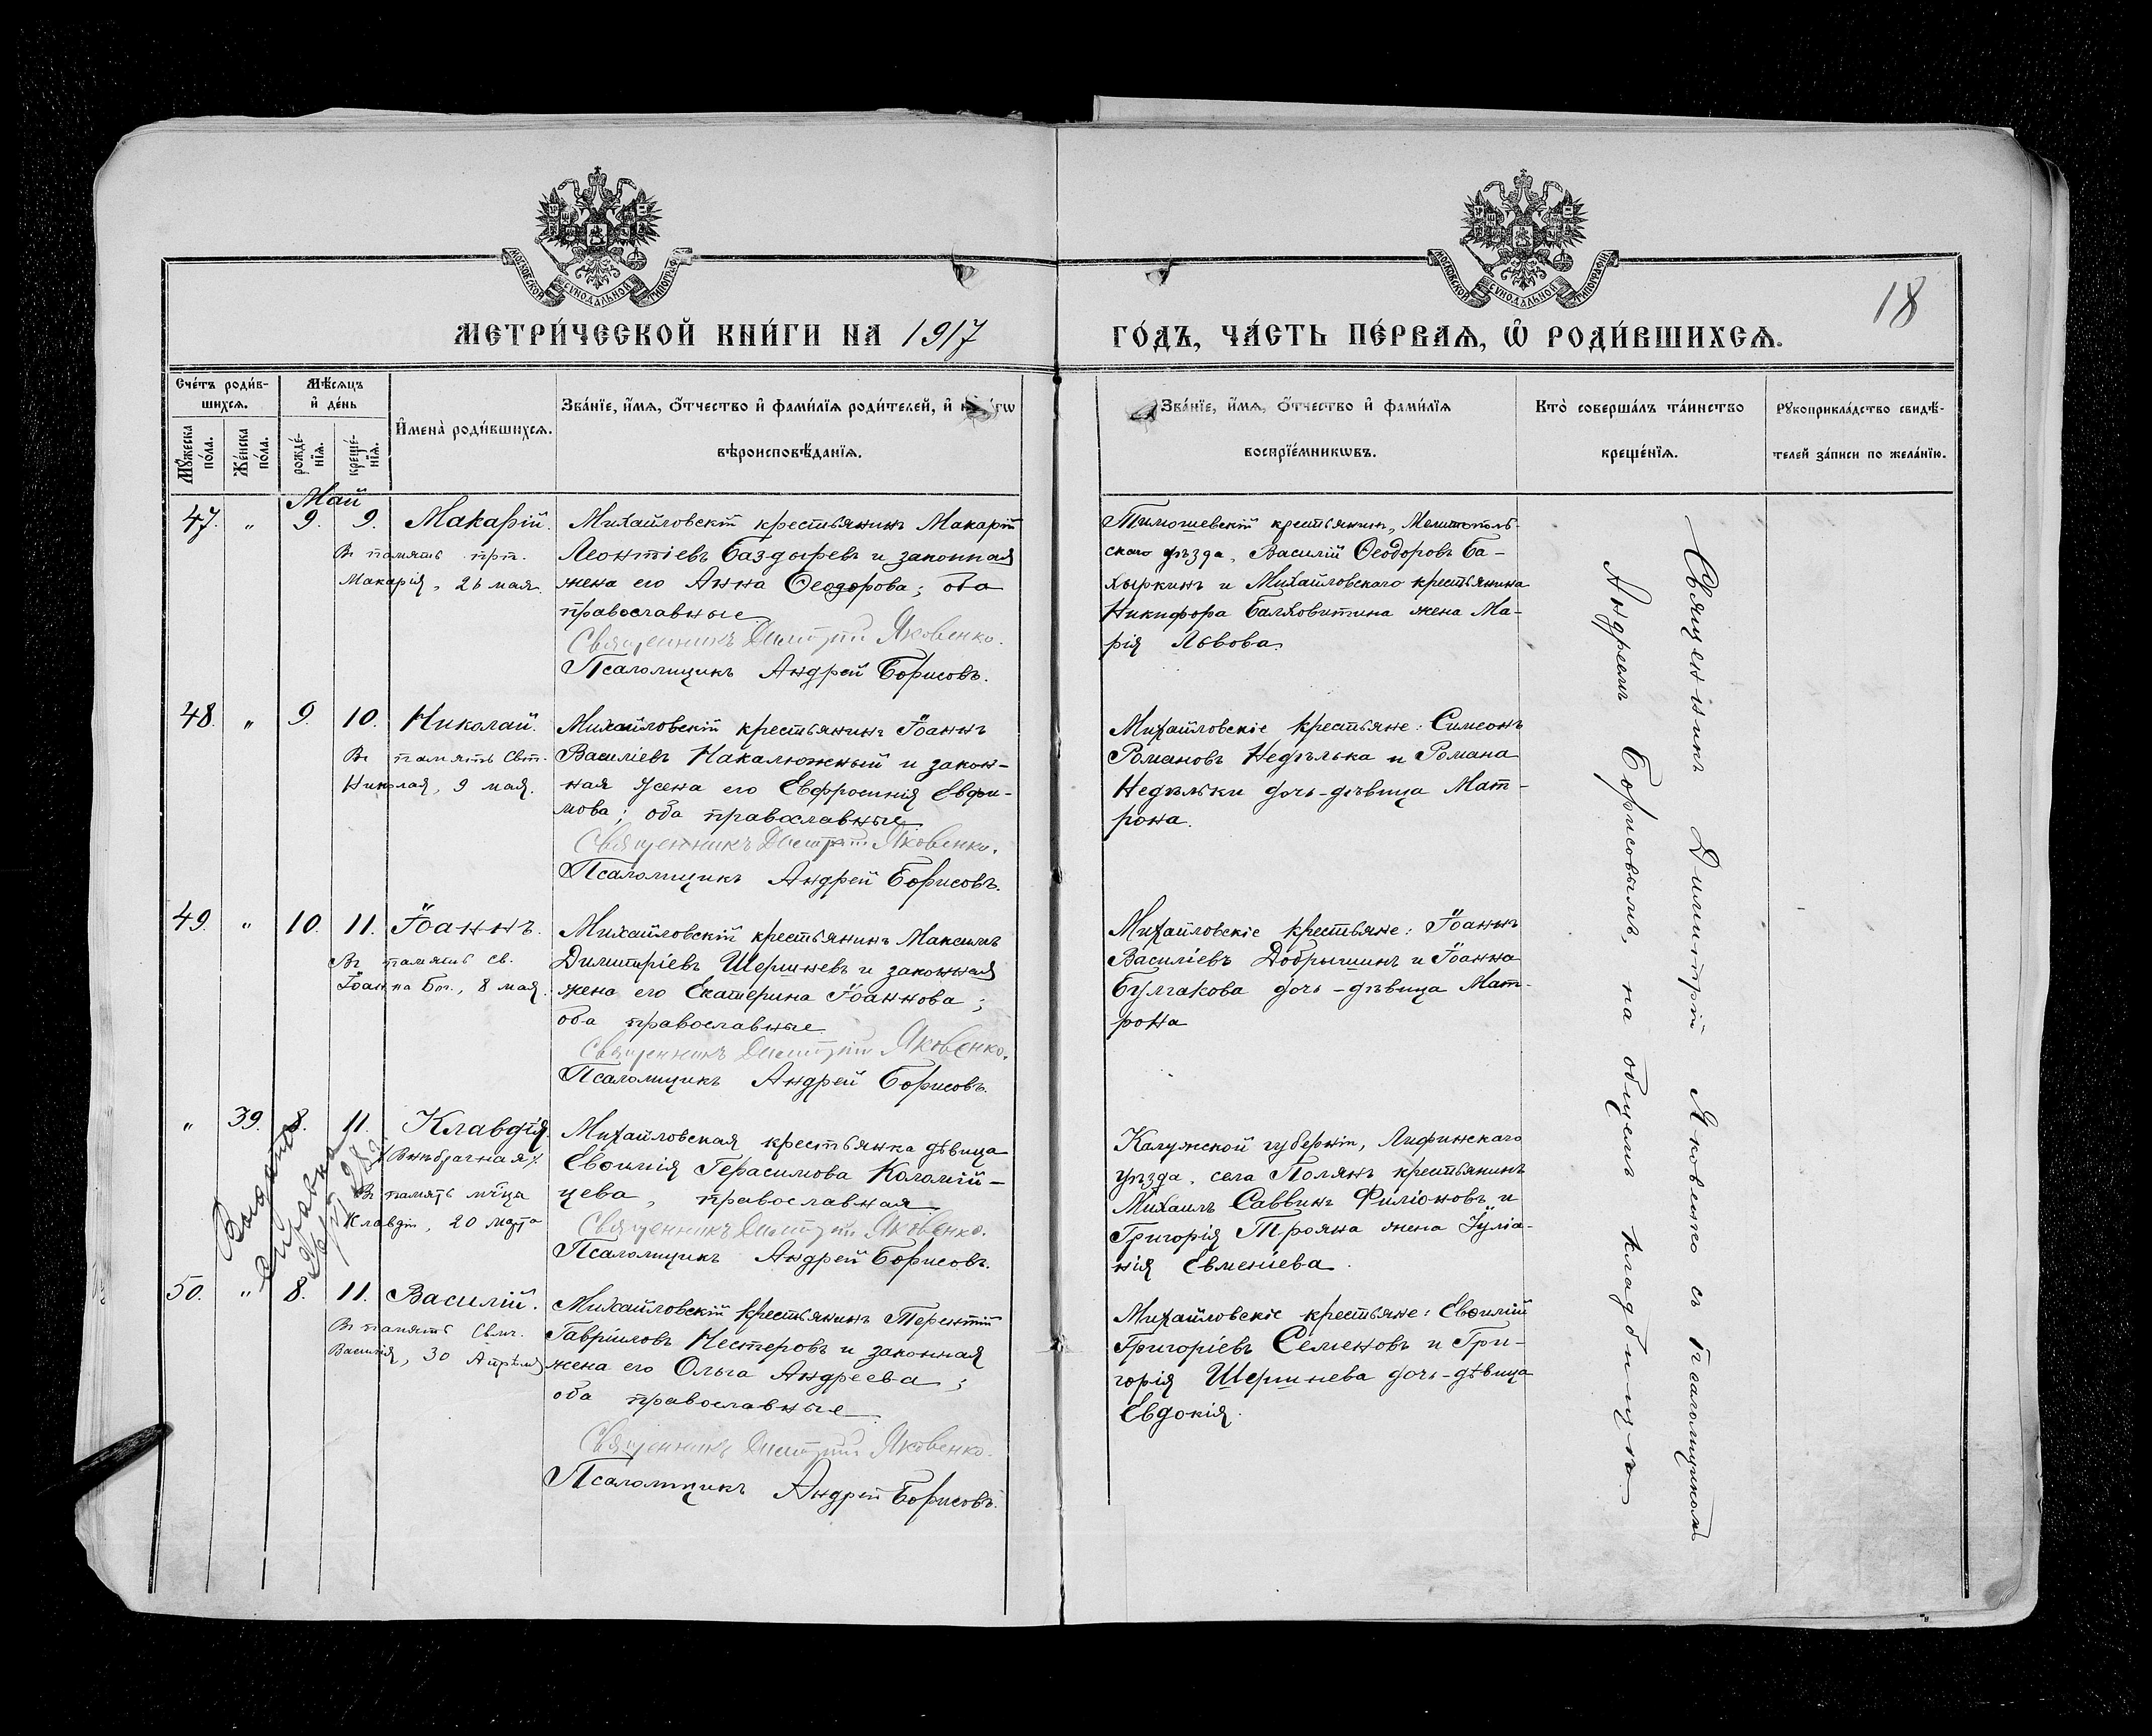 МОСКОВСКОЙ СѴНОДАЛЬНОЙ ТИПОГРАФІИ
МОСКОВСКОЙ СѴНОДАЛЬНОЙ ТИПОГРАФІИ
18
МЕТРИ́ЧЕСКОЙ КНИ́ГИ НА 1917
ГО́ДЪ, ЧА́СТЬ ПЕ́РВАѦ, Ѽ РОДИ́ВШИХСѦ.
Сче́тъ роди́в-
шихсѧ.
Мꙋ́жеска по́ла.
Же́нска по́ла.
Мѣ́сѧцъ
и҆ де́нь
рожде́-
нїѧ.
креще́-
нїѧ.
И҆мена̀ роди́вшихсѧ.
Зва́нїе, и҆́мѧ, ѻ҆́тчество и҆ фами́лїѧ роди́телей, и҆
вѣроисповѣ́данїѧ.
Зва́нїе, и҆́мѧ, ѻ҆́тчество и҆ фами́лїѧ
воспрїе́мникѡвъ.
Кто̀ соверша́лъ та́инство
креще́нїѧ.
Рꙋкоприкла́дство свидѣ́-
телей за́писи по жела́нїю.
Май
47. " 9. 9. Макарій.
Въ память прп.
Макарія, 26 мая.
Михайловскій крестьянинъ Макарій
Леонтіевъ Баздыревъ и законная
жена его Анна Ѳеодорова; оба
православные
Священникъ Димитрій Яковенко.
Псаломщикъ Андрей Борисовъ.
Тимошевскій крестьянинъ, Мелитополь-
скаго уѣзда, Василій Ѳеодоровъ Ба-
хыркинъ и Михайловскаго крестьянина
Никифора жена Ма-
рія Львова.
48. " 9. 10. Николай.
Въ память Свт.
Николая, 9 мая.
Михайловскій крестьянинъ Іоаннъ
Василіевъ Накалюжный и закон-
ная жена его Евфросинія Евфи-
мова; оба православные
Священникъ Димитрій Яковенко.
Псаломщикъ Андрей Борисовъ.
Михайловскіе крестьяне: Симеонъ
Романовъ Недѣлька и Романа
Недѣльки дочь-дѣвица Мат-
рона.
49. " 10. 11. Іоаннъ.
Въ память св.
Іоанна Бог., 8 мая.
Михайловскій крестьянинъ Максимъ
Димитріевъ Шершневъ и законная
жена его Екатерина Іоаннова;
оба православные
Священникъ Димитрій Яковенко.
Псаломщикъ Андрей Борисовъ.
Михайловскіе крестьяне: Іоаннъ
Василіевъ Добрышинъ и Іоанна
Булгакова дочь-дѣвица Мат-
рона
" 39. 8. 11. Клавдія.
/Внѣбрачная/.
Въ память м̃ца
Клавдіи, 20 марта
Выдана
справка
Михайловская крестьянка дѣвица
Евѳимія Герасимова Коломій-
цева, православная
Священникъ Димитрій Яковенко.
Псаломщикъ Андрей Борисовъ.
Калужской губерніи,
уѣзда, села Полянъ крестьянинъ
Михаилъ Саввинъ Филіоновъ и
Григорія Трояна жена Іуліа-
нія Евменіева.
50. " 8. 11. Василій.
Въ память Свмч.
Василія, 30 Апрѣля
Михайловскій крестьянинъ Терентій
Гавріиловъ Нестеровъ и законная
жена его Ольга Андреева;
оба православные
Священникъ Димитрій Яковенко.
Псаломщикъ Андрей Борисовъ.
Михайловскіе крестьяне: Евѳимій
Григоріевъ Семеновъ и Гри-
горія Шершнева дочь-дѣвица
Евдокія.
Священникъ Димитрій Яковенко съ псаломщикомъ
Андреемъ Борисовымъ, на общемъ кладбищѣ.